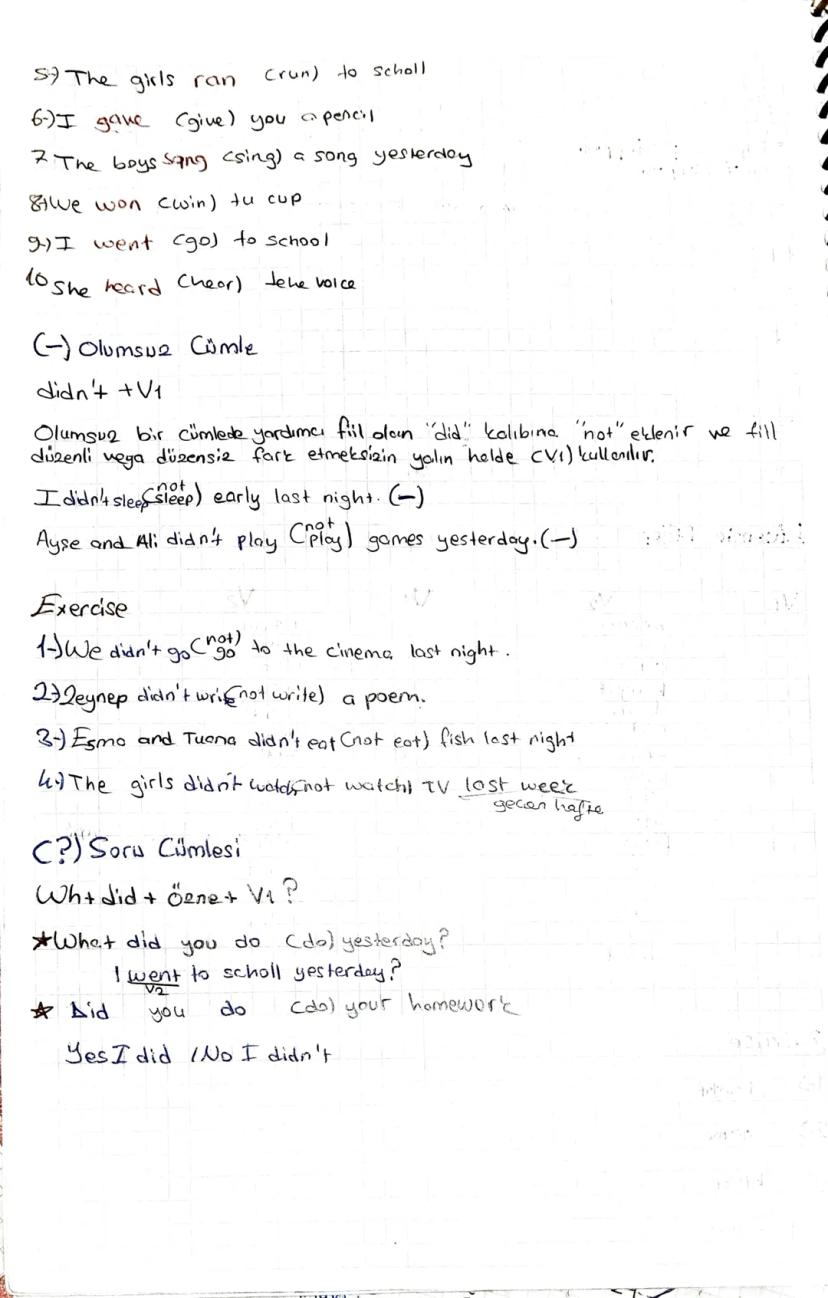 5-) The girls ran (run) to scholl
6-) I gave (give) you a pencil
7 The boys sang (sing) a song yesterday
8-) We won (win) tu cup
9-) I went (go) to school
10 She heard (hear) tehe voice
(-) Olumsuz Cümle
didn't + V1
Olumsuz bir cümlede yardımcı fiil olan "did" kalıbına "not" eklenir ve fiil
düzenli veya düzensiz fark etmeksizin yalın halde (V1) kullanılır.
I didn't sleep (not sleep) early last night. (-)
Ayse and Ali didn't play (not play) games yesterday. (-)
Exercise
1-) We didn't go (not go) to the cinema last night.
2-) Zeynep didn't write (not write) a poem.
3-) Esma and Tuana didn't eat (not eat) fish last night
4-) The girls didn't watch (not watch) TV last week
geçen hafta
(?) Soru Cümlesi
Wh + did + özne + V1?
★ What did you do (do) yesterday?
I went to scholl yesterday?
V2
★ Did you do (do) your homework
Yes I did / No I didn't